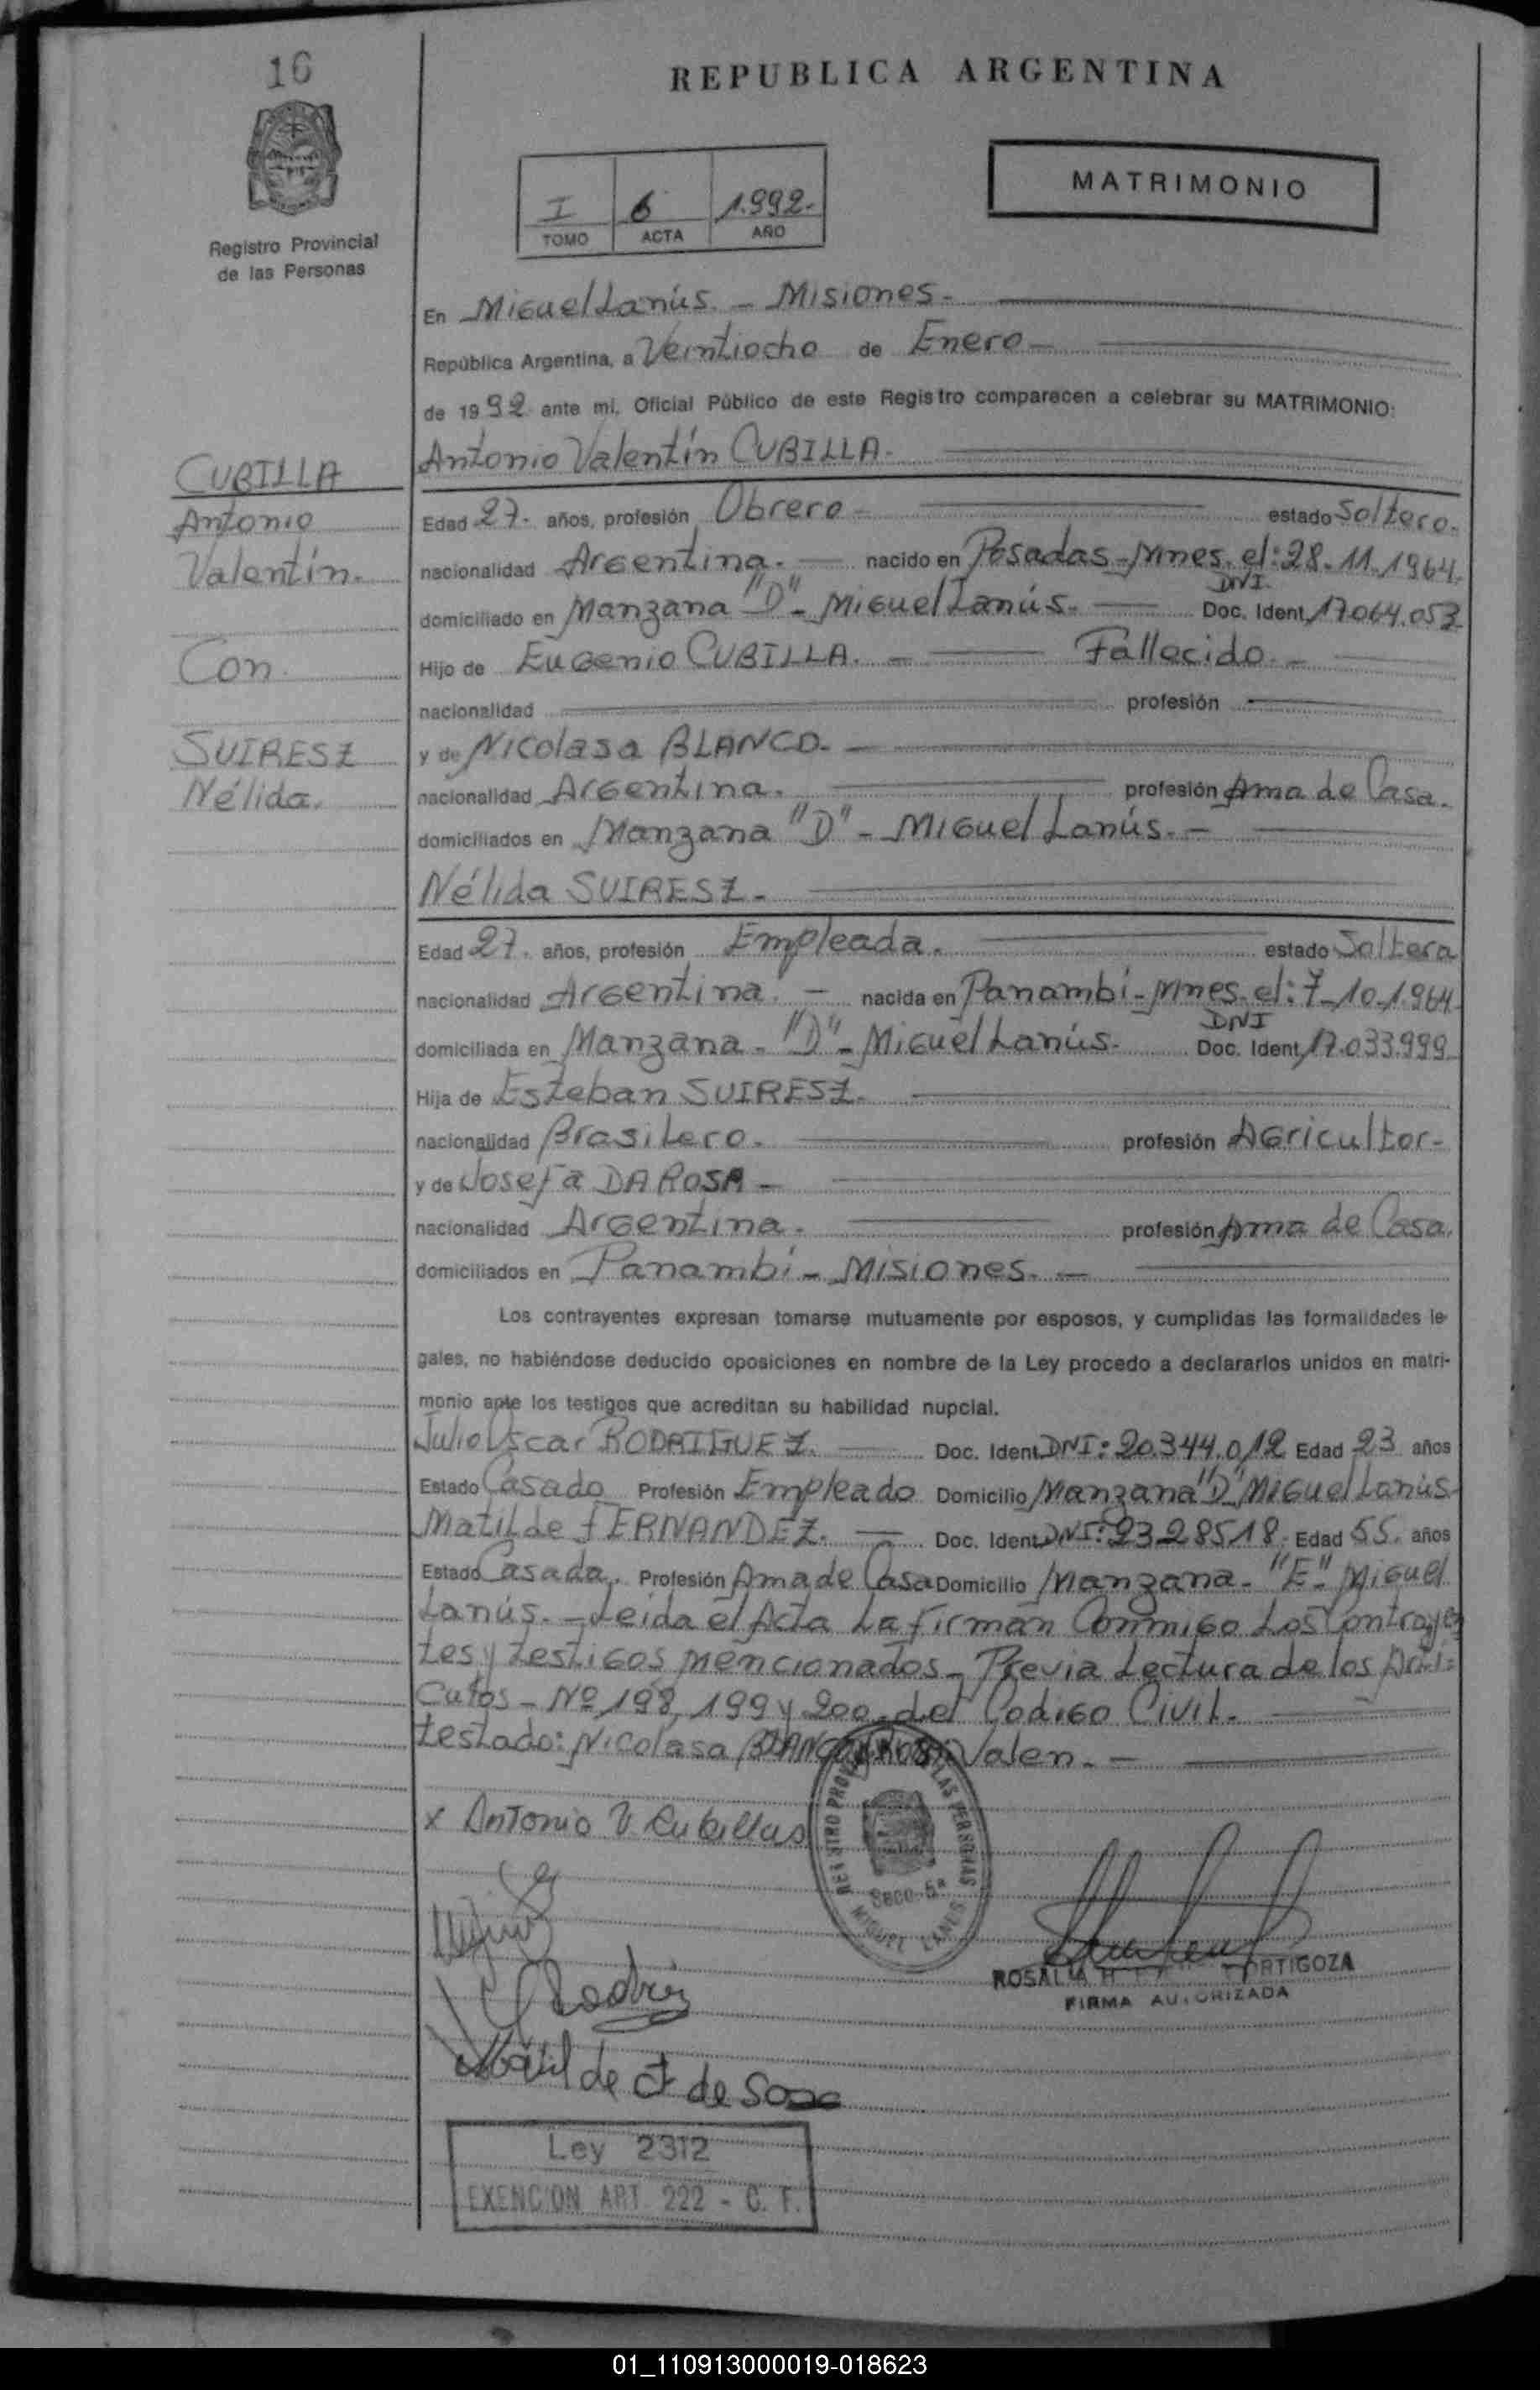 16
REPUBLICA ARGENTINA
MATRIMONIO
I 6 1.992.-
TOMO ACTA AÑO
Registro Provincial
de las Personas
En Miguel Lanús. - Misiones.-
República Argentina, a Veintiocho de Enero-
de 1992 ante mi, Oficial Público de este Registro comparecen a celebrar su MATRIMONIO:
CUBILLA
Antonio
Valentín.
Con.
SUIRESZ
Nélida.
Antonio Valentín CUBILLA.
Edad 27. años, profesión Obrero- estado Soltero.
nacionalidad Argentina. — nacido en Posadas-Mnes. el: 28.11.1964.
DNI.
domiciliado en Manzana "D"- Miguel Lanús. — Doc. Ident. 17.064.053
Hijo de Eugenio CUBILLA. - Fallecido.-
nacionalidad profesión
y de Nicolasa BLANCO.-
nacionalidad Argentina. profesión Ama de Casa.
domiciliados en Manzana "D"- Miguel Lanús.-
Nélida SUIRESZ-
Edad 27. años, profesión Empleada. estado Soltera
nacionalidad Argentina. - nacida en Panambí-Mnes. el: 7-10-1.964
DNI
domiciliada en Manzana- "D"-Miguel Lanús. Doc. Ident. 17.033.999
Hija de Esteban SUIRESZ.
nacionalidad Brasilero. profesión Agricultor-
y de Josefa DA ROSA-
nacionalidad Argentina. profesión Ama de Casa.
domiciliados en Panambí- Misiones.-
Los contrayentes expresan tomarse mutuamente por esposos, y cumplidas las formalidades le-
gales, no habiéndose deducido oposiciones en nombre de la Ley procedo a declararlos unidos en matri-
monio ante los testigos que acreditan su habilidad nupcial.
Julio Oscar RODRIGUEZ. — Doc. Ident. DNI: 20.344.012 Edad 23 años
Estado Casado Profesión Empleado Domicilio Manzana "D" Miguel Lanús-
Matilde FERNANDEZ. — Doc. Ident. DNI: 2328518. Edad 55. años
Estado Casada. Profesión Ama de Casa Domicilio Manzana- "E"- Miguel
Lanús.-Leida el Acta La Firman Conmigo Los Contrayen
tes y testigos mencionados- Previa Lectura de los Artí=
culos-Nº 198, 199 y 200. del Codigo Civil.-
testado: Nicolasa BLANCO Valen.-
x Antonio V. Cubillas
REGISTRO PROVINCIAL DE LAS PERSONAS
Secc. 5ª
MIGUEL LANUS
ROSALIA ORTIGOZA
FIRMA AUTORIZADA
Matilde F de
Ley 2312
EXENCION ART. 222 - C. F.
01_110913000019-018623